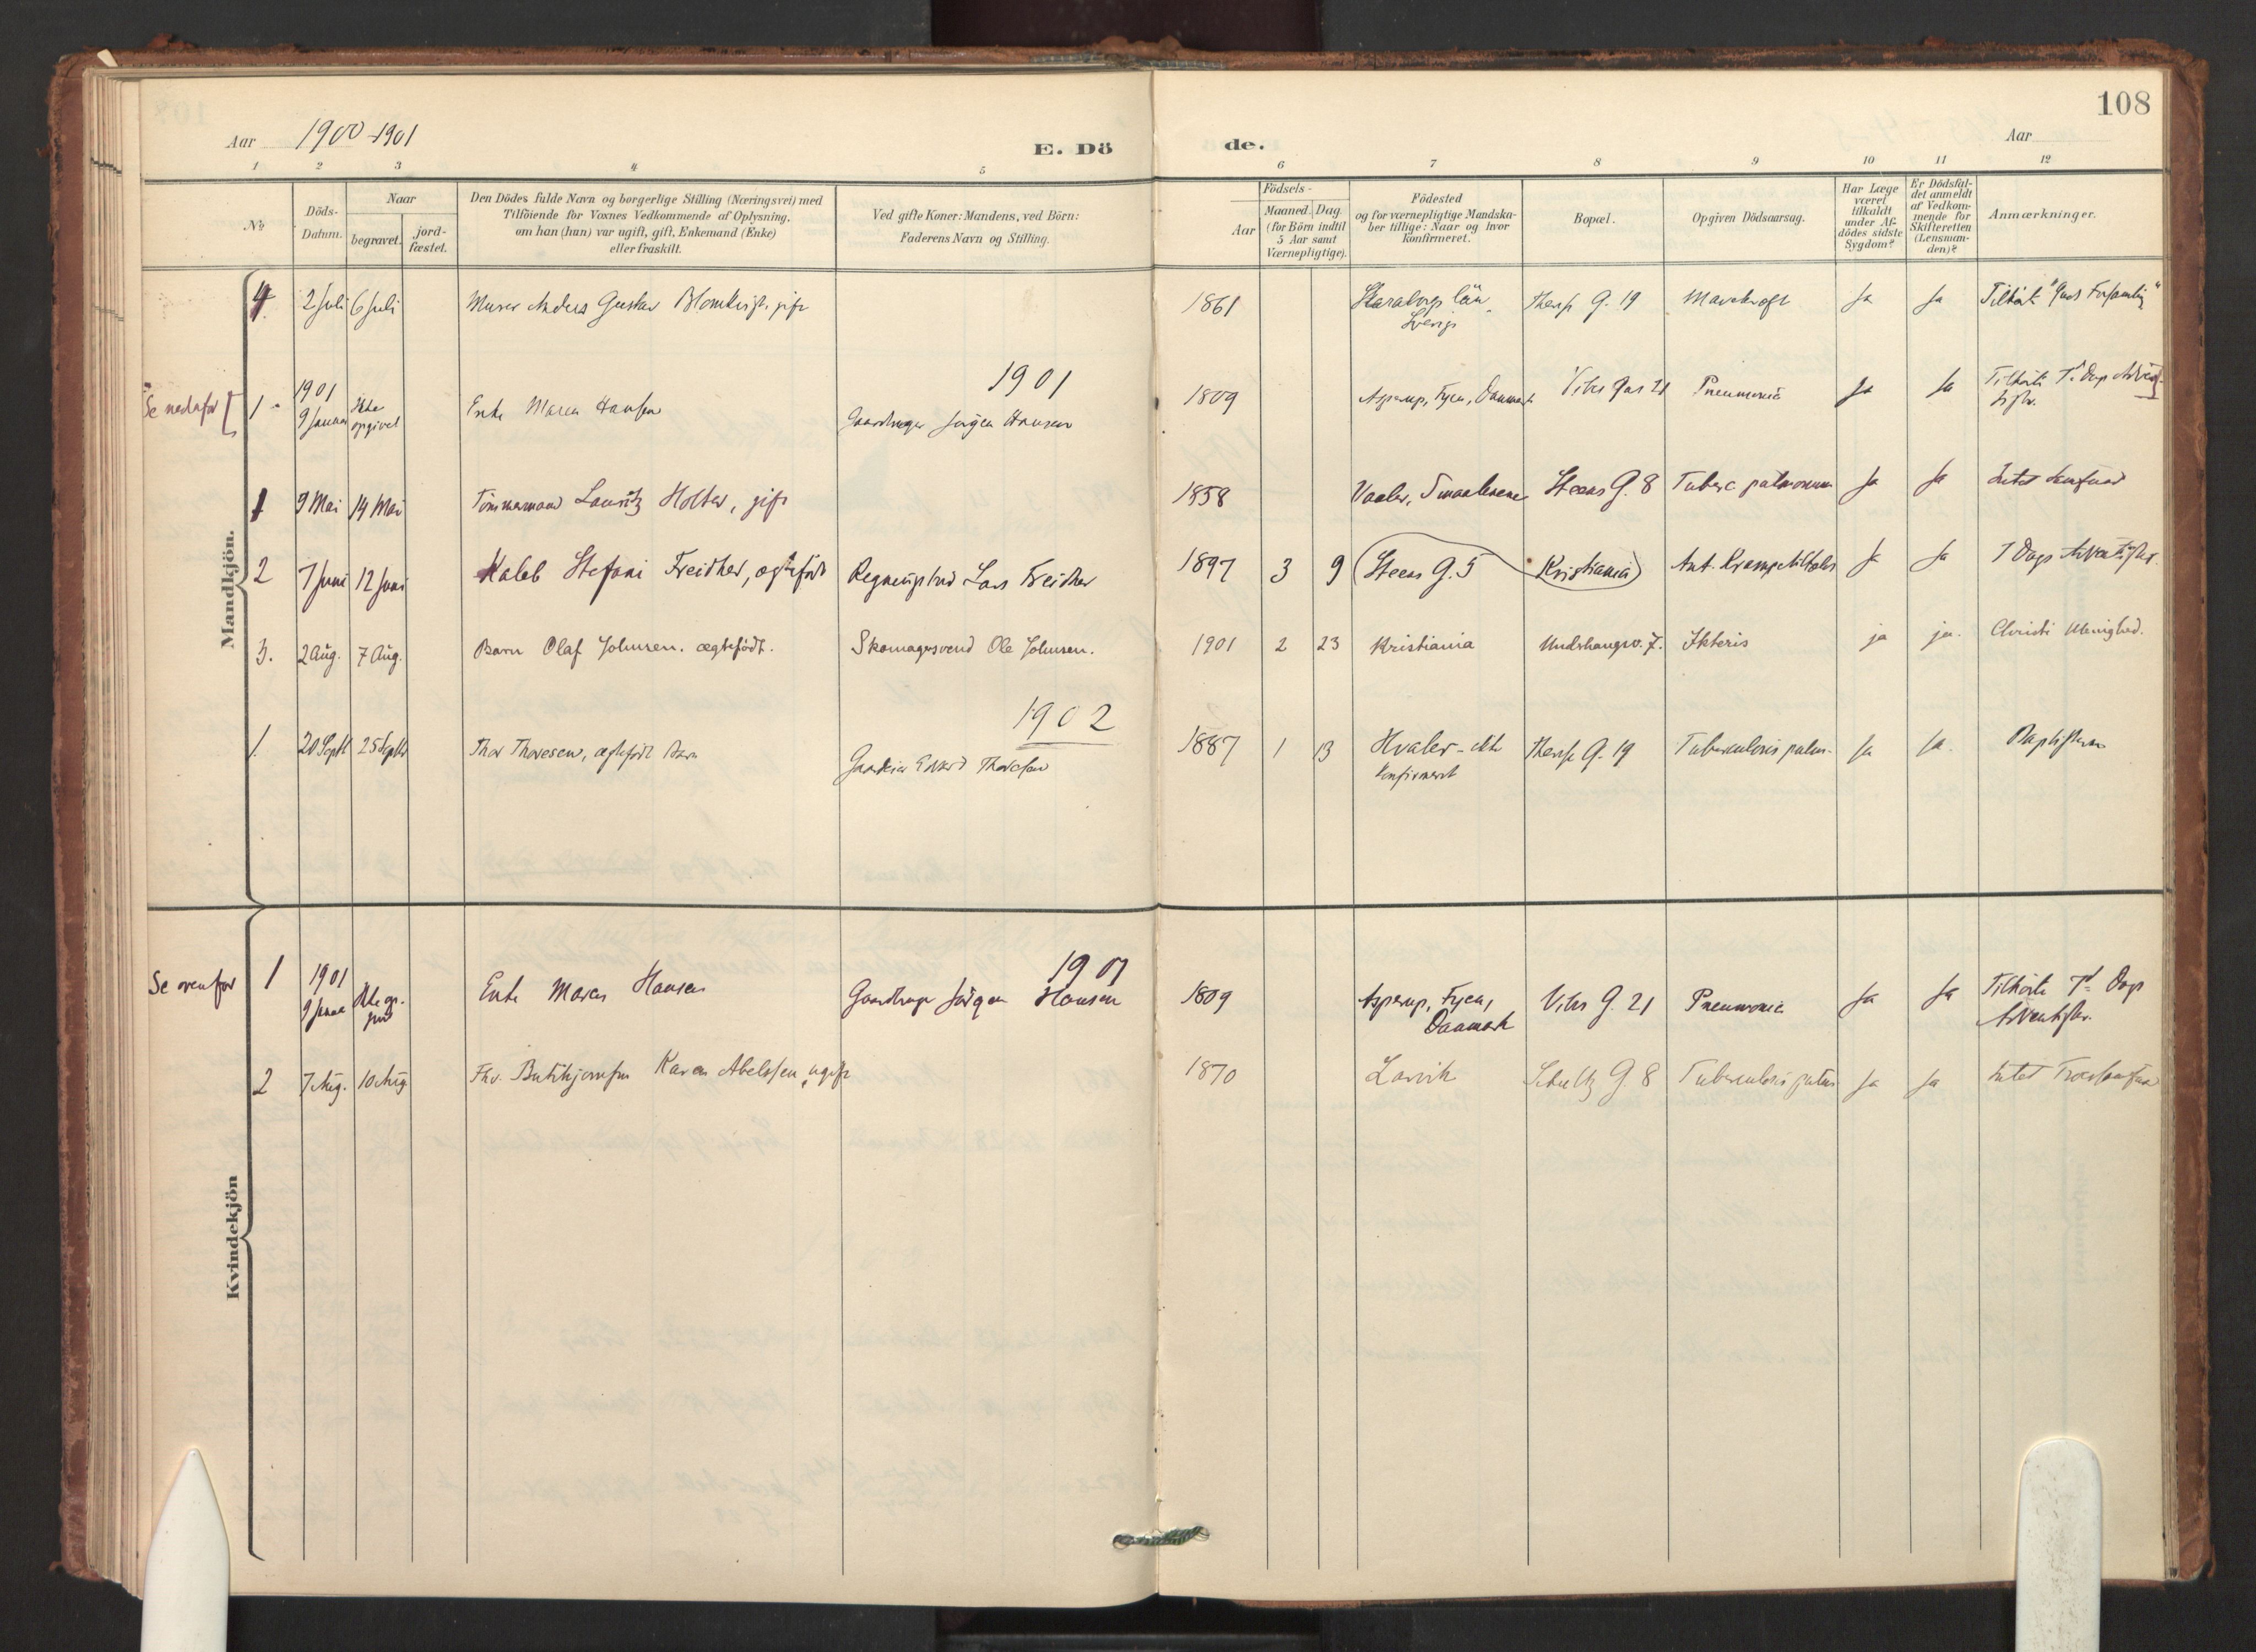 108
Aar 1900-1901 E. Dö de. Aar
1 2 3 4 5 6 7 8 9 10 11 12
No
Döds-Datum.
Naar
begravet. jord-fæstet.
Den Dödes fulde Navn og borgerlige Stilling (Næringsvei) med
Tilföiende for Voxnes Vedkommende af Oplysning,
om han (hun) var ugift, gift, Enkemand (Enke)
eller fraskilt.
Ved gifte Koner: Mandens, ved Börn:
Faderens Navn og Stilling.
Födsels-
Aar Maaned. Dag.
(for Börn indtil
5 Aar samt
Værnepligtige).
Födested
og for værnepligtige Mandska-
ber tillige: Naar og hvor
konfirmeret.
Bopæl.
Opgiven Dödsaarsag.
Har Læge
været
tilkaldt
under Af-
dödes sidste
Sygdom?
Er Dödsfal-
det anmeldt
af Vedkom-
mende for
Skifteretten
(Lensman-
den)?
Anmærkninger.
Mandkjön.
4 2 Juli 6 Juli Murer Anders Gustav Blomkvist, gift 1861 Skaraborgs län, Sverige G. 19 Ja Ja Tilhörte
1901
Se nedenfor 1 1901 9 Januar Ikke opgivet Enke Maren Hansen Gaardbruger Jörgen Hansen 1809 Asperup, Fyen, Danmark Vibes Gas 21 Pneumonie Ja Ja Tilhörte 7d Dags Adventister.
1 9 Mai 14 Mai Tömmermand Lauritz Holter, gift 1858 Vaaler, Smaalenene Steens G. 8 Tuberc pulmonum Ja Ja Intet Samfund
2 7 Juni 12 Juni Kaleb Stefani Freidher, ægtefödt Lars Freidher 1897 3 9 Steens G. 5 Kristiania Ja Ja 7 Dags Adventister.
3. 2 Aug. 7 Aug. Barn Olaf Johnsen. ægtefödt. Skomagersvend Ole Johnsen. 1901 2 23 Kristiania Underhaugsv. 7. Ikteris ja ja. Christi Menighed.
1902
1. 20 Septbr 25 Septbr Thor Thoresen, ægtefödt Barn Edvard Thoresen 1887 1 13 Hvaler - ikke konfirmeret G. 19 Tuberculosis pulm. Ja Ja. Baptisterne
Kvindekjön
1901
Se ovenfor 1 1901 9 Januar Ikke opgivet Enke Maren Hansen Gaardbruger Jörgen Hansen 1809 Asperup, Fyen, Danmark Vibes G. 21 Pneumonie Ja Ja Tilhörte 7d Dags Adventister.
2 7 Aug. 10 Aug. Fhv. Butikjomfru Karen Abelsen, ugift 1870 Larvik Schultz G. 8 Tuberculosis pulm Ja Ja Intet Trossamfund